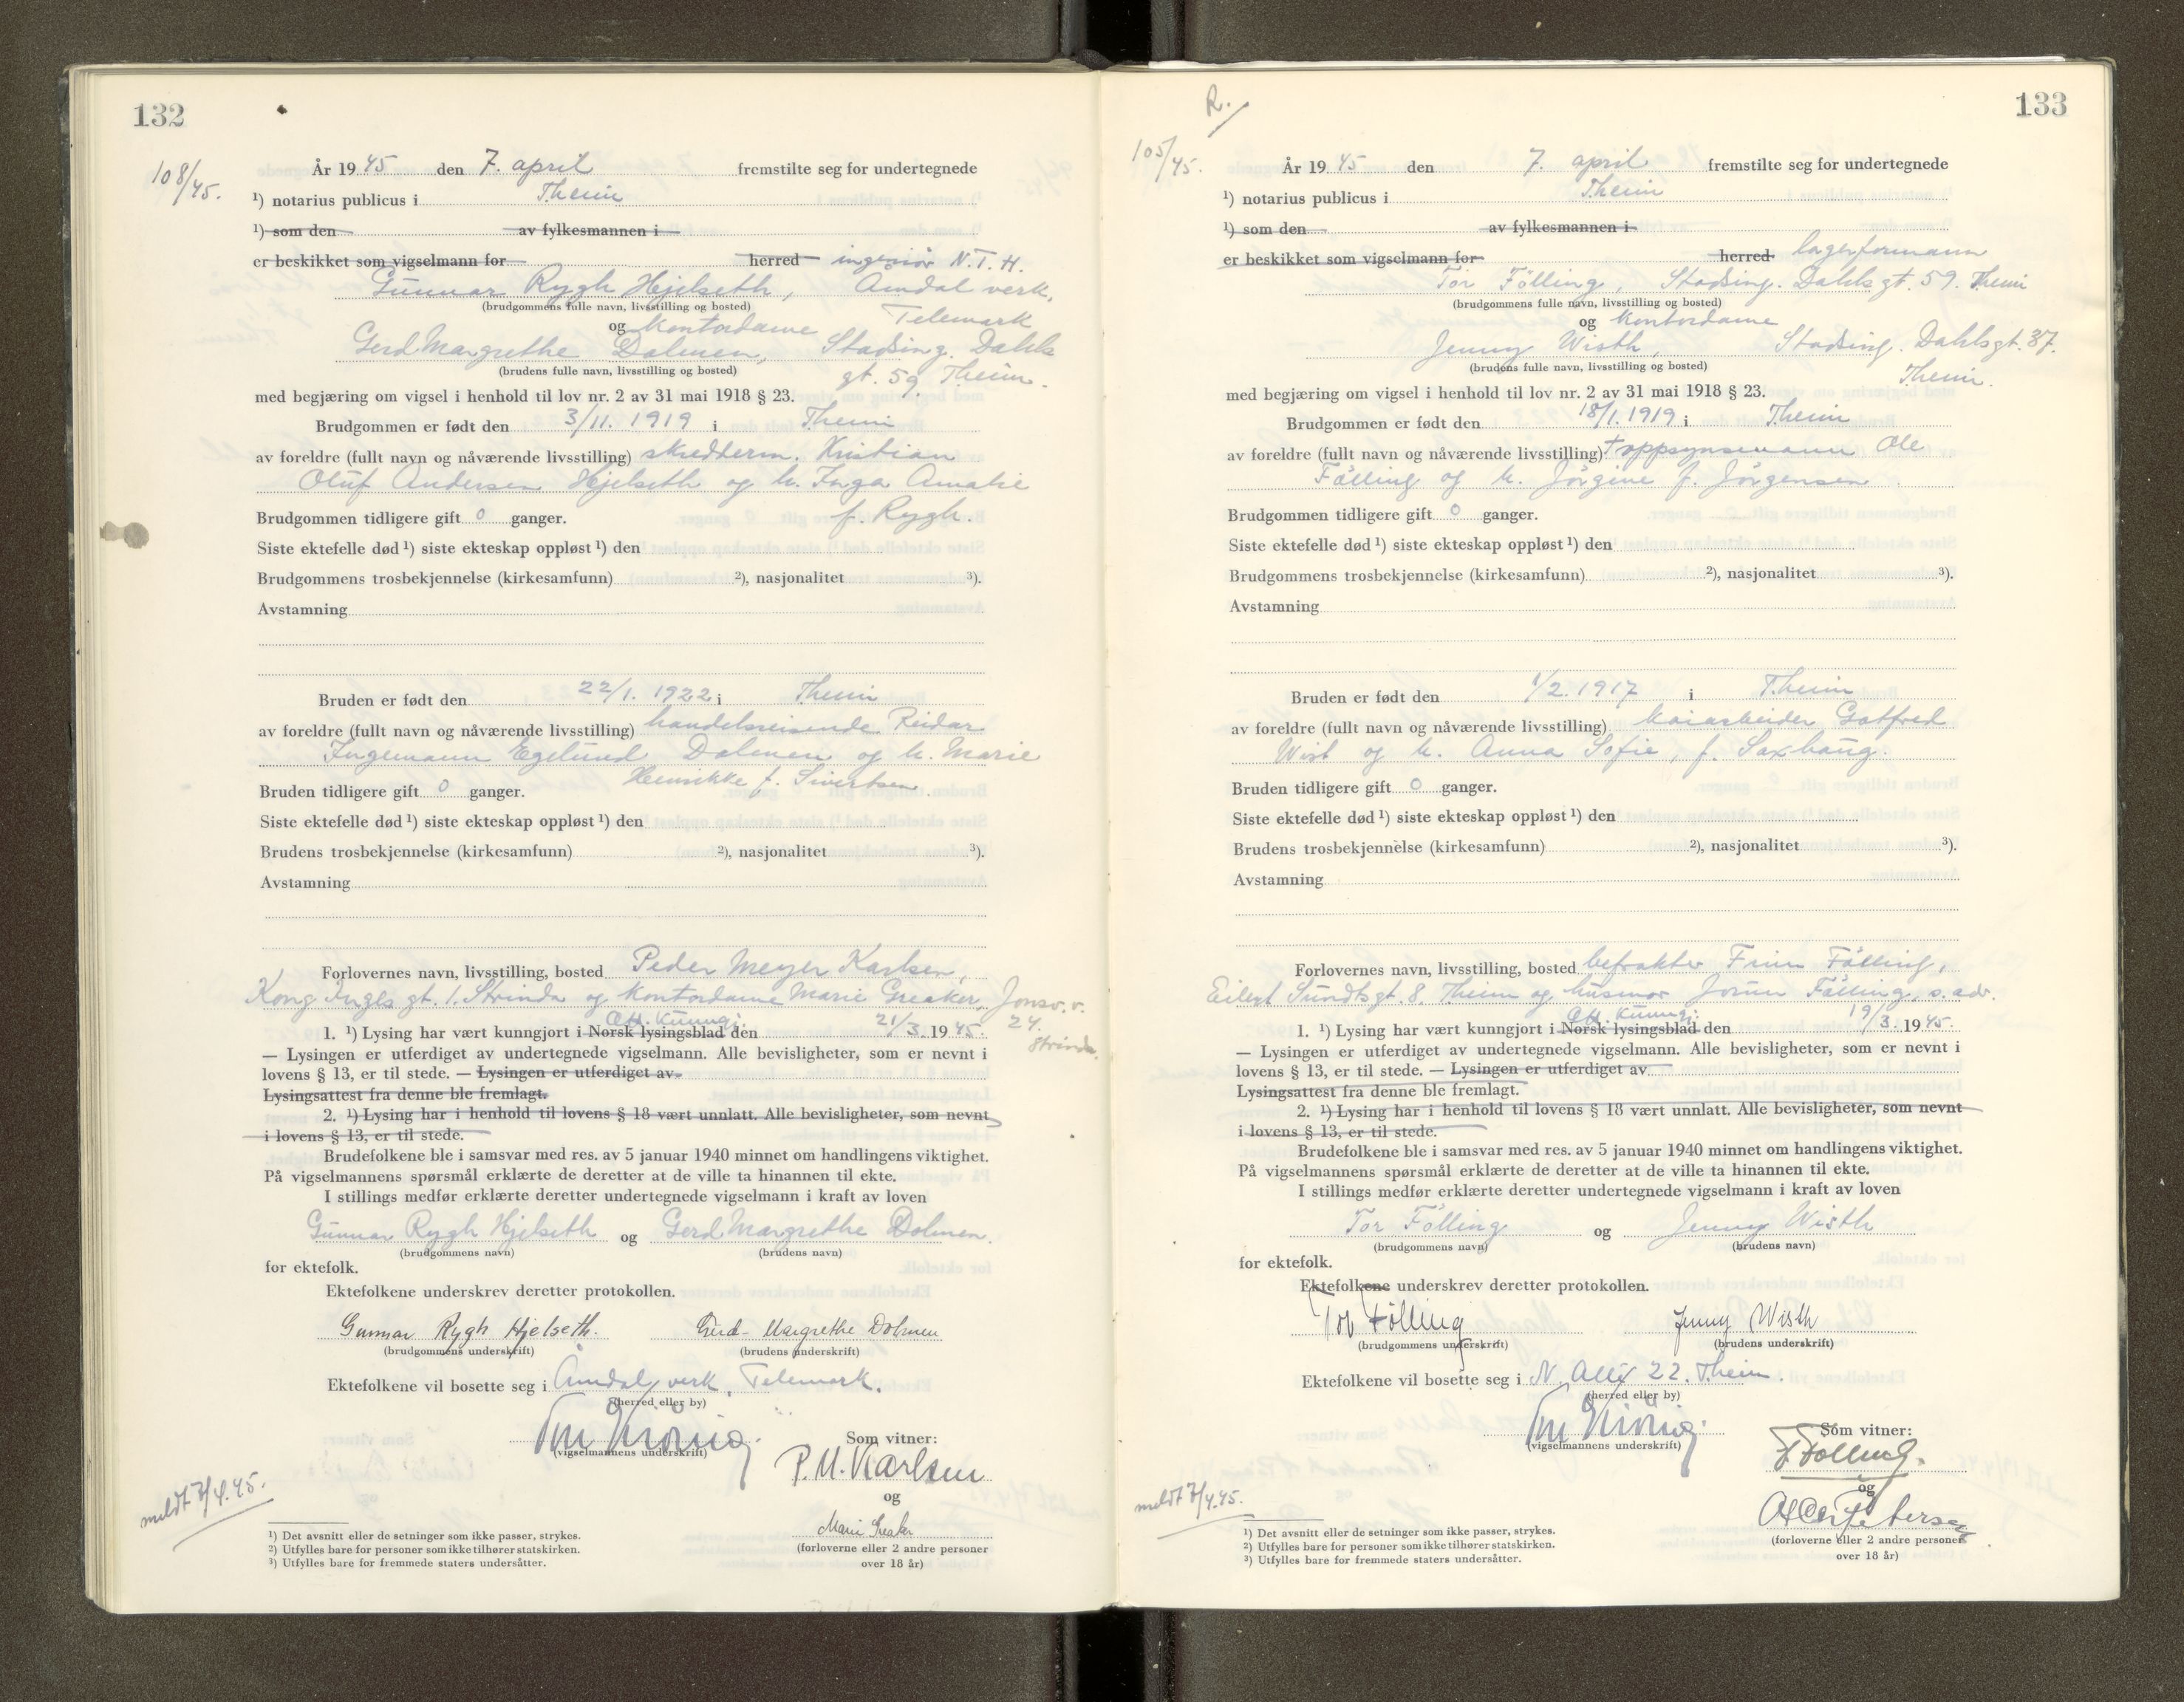 132
108/45.
År 1945 den 7. april fremstilte seg for undertegnede
¹) notarius publicus i Theim
¹) som den av fylkesmannen i
er beskikket som vigselmann for herred ingeniør N.T.H.
Gunnar Rygh Hjelseth, Åmdal verk,
(brudgommens fulle navn, livsstilling og bosted)
Telemark
og kontordame
Gerd Margrethe Dolmen, Stadsing. Dahls
(brudens fulle navn, livsstilling og bosted)
gt. 59, Theim.
med begjæring om vigsel i henhold til lov nr. 2 av 31 mai 1918 § 23.
Brudgommen er født den 3/11. 1919 i Theim
av foreldre (fullt navn og nåværende livsstilling) skredderm. Kristian
Oluf Andersen Hjelseth og h. Inga Amalie
f. Rygh.
Brudgommen tidligere gift 0 ganger.
Siste ektefelle død ¹) siste ekteskap oppløst ¹) den
Brudgommens trosbekjennelse (kirkesamfunn) ²), nasjonalitet ³).
Avstamning
Bruden er født den 22/1. 1922 i Theim
av foreldre (fullt navn og nåværende livsstilling) handelsreisende Reidar
Ingemann Egelund Dolmen og h. Marie
Henrikke f. Sivertsen.
Bruden tidligere gift 0 ganger.
Siste ektefelle død ¹) siste ekteskap oppløst ¹) den
Brudens trosbekjennelse (kirkesamfunn) ²), nasjonalitet ³).
Avstamning
Forlovernes navn, livsstilling, bosted Peder Meyer Karlsen,
Kong Inges gt. 1. Strinda og kontordame Marie Greaker, Jonsv. v.
24. Strinda.
Off. kunngj.
1. ¹) Lysing har vært kunngjort i Norsk lysingsblad den 21/3. 1945.
— Lysingen er utferdiget av undertegnede vigselmann. Alle bevisligheter, som er nevnt i
lovens § 13, er til stede. — Lysingen er utferdiget av
Lysingsattest fra denne ble fremlagt.
2. ¹) Lysing har i henhold til lovens § 18 vært unnlatt. Alle bevisligheter, som nevnt
i lovens § 13, er til stede.
Brudefolkene ble i samsvar med res. av 5 januar 1940 minnet om handlingens viktighet.
På vigselmannens spørsmål erklærte de deretter at de ville ta hinannen til ekte.
I stillings medfør erklærte deretter undertegnede vigselmann i kraft av loven
Gunnar Rygh Hjelseth og Gerd Margrethe Dolmen.
(brudgommens navn) (brudens navn)
for ektefolk.
Ektefolkene underskrev deretter protokollen.
Gunnar Rygh Hjelseth. Gerd-Margrethe Dolmen
(brudgommens underskrift) (brudens underskrift)
Ektefolkene vil bosette seg i Åmdal verk, Telemark.
(herred eller by)
(vigselmannens underskrift)
Som vitner:
P. M. Karlsen
og
Marie Greaker
(forloverne eller 2 andre personer
over 18 år)
meldt 7/4.45.
¹) Det avsnitt eller de setninger som ikke passer, strykes.
²) Utfylles bare for personer som ikke tilhører statskirken.
³) Utfylles bare for fremmede staters undersåtter.
R.
133
105/45.
År 1945 den 7. april fremstilte seg for undertegnede
¹) notarius publicus i Theim
¹) som den av fylkesmannen i
er beskikket som vigselmann for herred lagerformann
Tor Følling, Stadsing. Dahls gt. 59. Theim
(brudgommens fulle navn, livsstilling og bosted)
og kontordame
Jenny Wisth, Stadsing. Dahls gt. 37.
(brudens fulle navn, livsstilling og bosted)
Theim.
med begjæring om vigsel i henhold til lov nr. 2 av 31 mai 1918 § 23.
Brudgommen er født den 18/1. 1919 i Theim
av foreldre (fullt navn og nåværende livsstilling) † oppsynsmann Ole
Følling og h. Jørgine f. Jørgensen.
Brudgommen tidligere gift 0 ganger.
Siste ektefelle død ¹) siste ekteskap oppløst ¹) den
Brudgommens trosbekjennelse (kirkesamfunn) ²), nasjonalitet ³).
Avstamning
Bruden er født den 1/2. 1917 i Theim
av foreldre (fullt navn og nåværende livsstilling) kaiarbeider Gotfred
Wist og h. Anna Sofie, f. Saxhaug.
Bruden tidligere gift 0 ganger.
Siste ektefelle død ¹) siste ekteskap oppløst ¹) den
Brudens trosbekjennelse (kirkesamfunn) ²), nasjonalitet ³).
Avstamning
Forlovernes navn, livsstilling, bosted befrakter Finn Følling,
Eilert Sundts gt. 8. Theim og husmor Jorun Følling, s. adr.
Off. kunngj.
1. ¹) Lysing har vært kunngjort i Norsk lysingsblad den 19/3. 1945.
— Lysingen er utferdiget av undertegnede vigselmann. Alle bevisligheter, som er nevnt i
lovens § 13, er til stede. — Lysingen er utferdiget av
Lysingsattest fra denne ble fremlagt.
2. ¹) Lysing har i henhold til lovens § 18 vært unnlatt. Alle bevisligheter, som nevnt
i lovens § 13, er til stede.
Brudefolkene ble i samsvar med res. av 5 januar 1940 minnet om handlingens viktighet.
På vigselmannens spørsmål erklærte de deretter at de ville ta hinannen til ekte.
I stillings medfør erklærte deretter undertegnede vigselmann i kraft av loven
Tor Følling og Jenny Wisth
(brudgommens navn) (brudens navn)
for ektefolk.
Ektefolkene underskrev deretter protokollen.
Tor Følling Jenny Wisth
(brudgommens underskrift) (brudens underskrift)
Ektefolkene vil bosette seg i N. Allé 22. Theim.
(herred eller by)
(vigselmannens underskrift)
Som vitner:
F Følling.
og
(forloverne eller 2 andre personer
over 18 år)
meldt 7/4.45.
¹) Det avsnitt eller de setninger som ikke passer, strykes.
²) Utfylles bare for personer som ikke tilhører statskirken.
³) Utfylles bare for fremmede staters undersåtter.